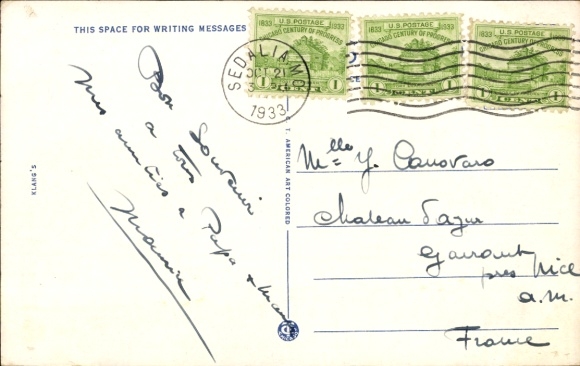 THIS SPACE FOR WRITING MESSAGES
Bon Souvenir
a tous
mes amitiés a Papa & Mam
Maurice
KLANG'S
C. T. AMERICAN ART COLORED
1833 U.S. POSTAGE 1933
CHICAGO CENTURY OF PROGRESS
1 1
1833 U.S. POSTAGE 1933
CHICAGO CENTURY OF PROGRESS
1 1
1833 U.S. POSTAGE 1933
CHICAGO CENTURY OF PROGRESS
1 1
SEDALIA, MO.
OCT 21
1933
Mlle Y. Canovaro
Chateau d'azur
Gairaut
pres Nice
a.m.
France